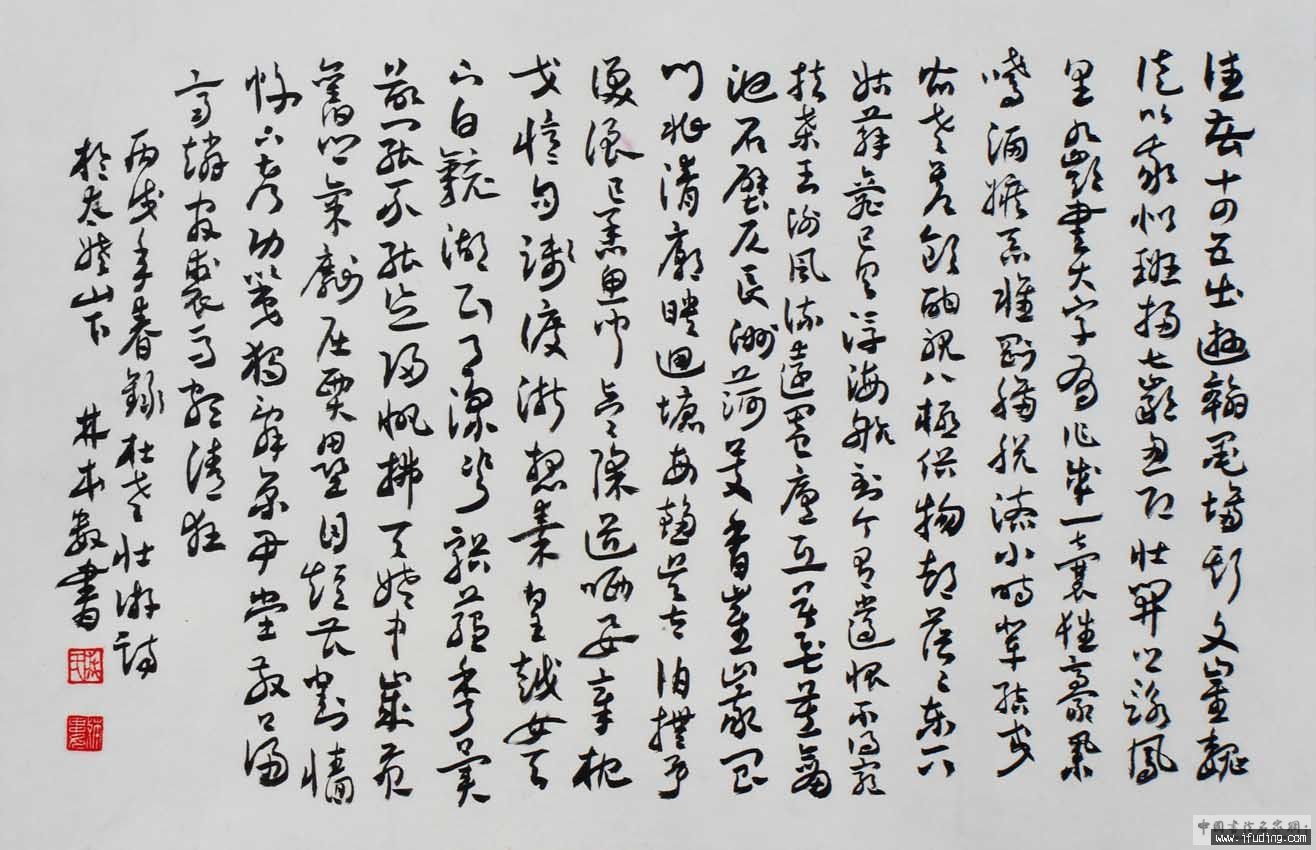 往昔十四五出遊翰墨場斯文崔魏
徒以我似班揚七齡思即壯開口詠鳳
凰九齡書大字有作成一囊性豪業
嗜酒嫉惡懷剛腸脫小時輩結交
皆老蒼飲酣視八極俗物都茫茫東下
姑蘇臺已具浮海航到今有遺恨不得窮
扶桑王謝風流遠闔廬丘墓荒劍
池石壁仄長洲荷芰香嵯峨閶
門北清廟映迴塘每趨吳太伯撫事
淚浪浪蒸魚聞匕首除道哂要章枕
戈憶勾踐渡浙想秦皇越女天
下白鑒湖五月涼剡谿蘊秀異
欲罷不能忘歸帆拂天姥中歲貢
舊鄉氣劘屈賈壘目短曹劉牆
忤下考功第獨辭京尹堂放蕩
齊趙間裘馬頗清狂
丙戌年春錄杜老壯游詩
於太姥山下 林本書
中國書法名家網
www.ifuding.com